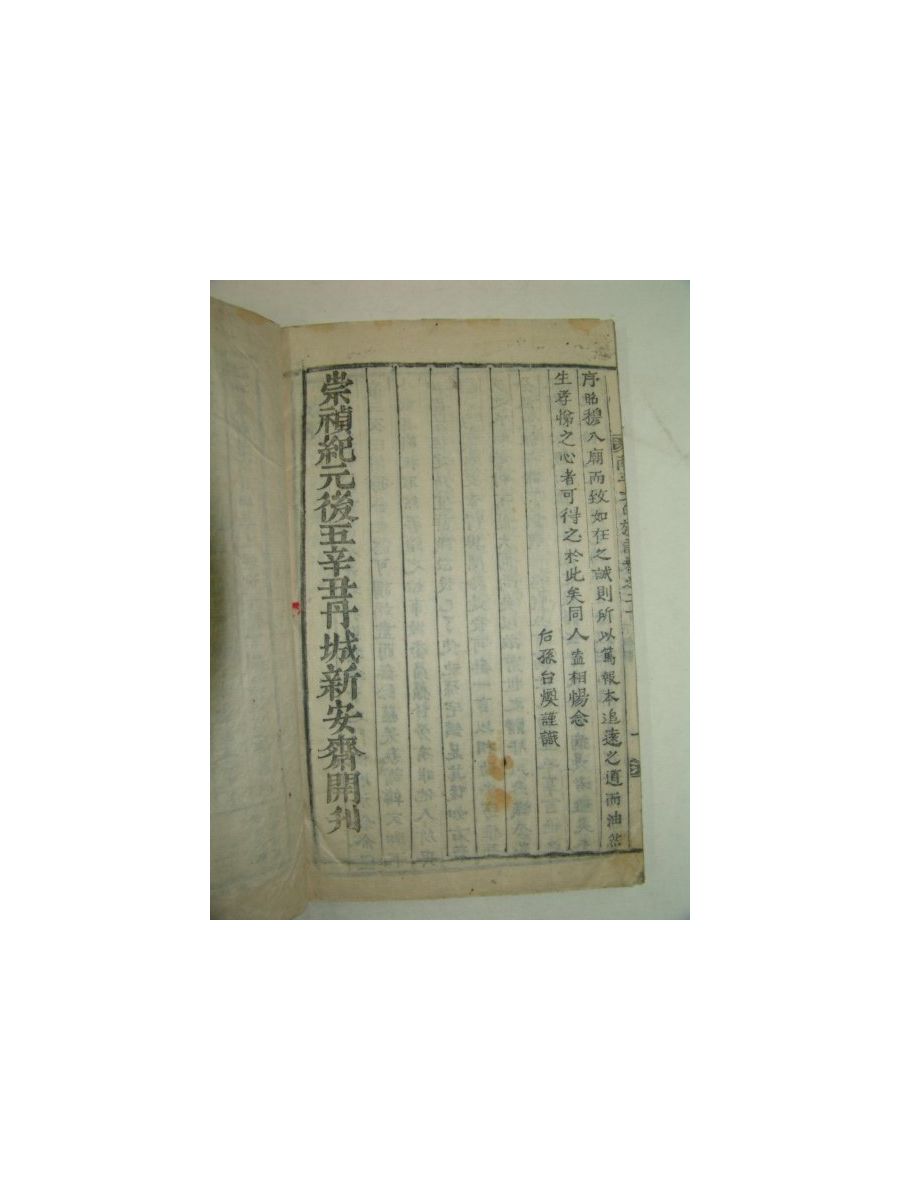 序昭穆入廟而致如在之誠則所以篤報本追遠之道而油然
生孝悌之心者可得之於此矣同人盍相惕念
后孫台煥謹識
崇禎紀元後五辛丑丹城新安齋開刊